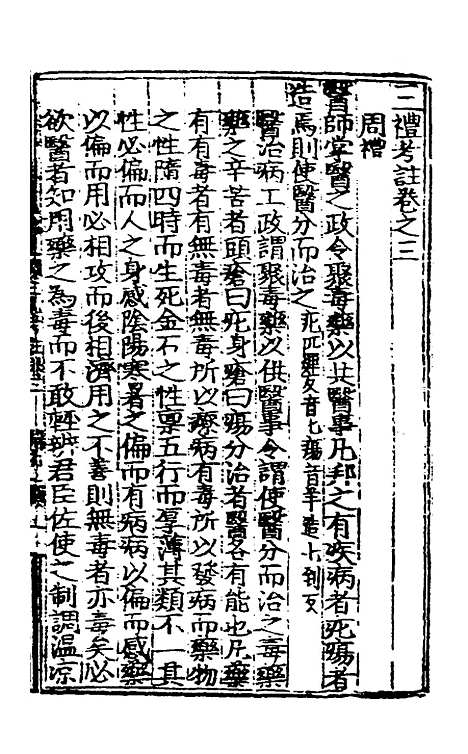 三禮考註卷之三
周禮
醫師掌醫之政令聚毒藥以共醫事凡邦之有疾病者疕瘍者
造焉則使醫分而治之疕匹婢反音匕瘍音羊造七到反
醫治病工政謂聚毒藥以供醫事令謂使醫分而治之毒藥
藥之辛苦者頭瘡曰疕身瘡曰瘍分治者醫各有能也凡藥
有有毒者有無毒者無毒所以療病有毒所以發病而藥物
之性隨四時而生死金石之性禀五行而厚薄其類不一其
性必偏而人之身感陰陽寒暑之偏而有病病以偏而感藥
以偏而用必相攻而後相濟用之不善則無毒者亦毒矣必
欲醫者知用藥之為毒而不敢輕辨君臣佐使之制調温凉